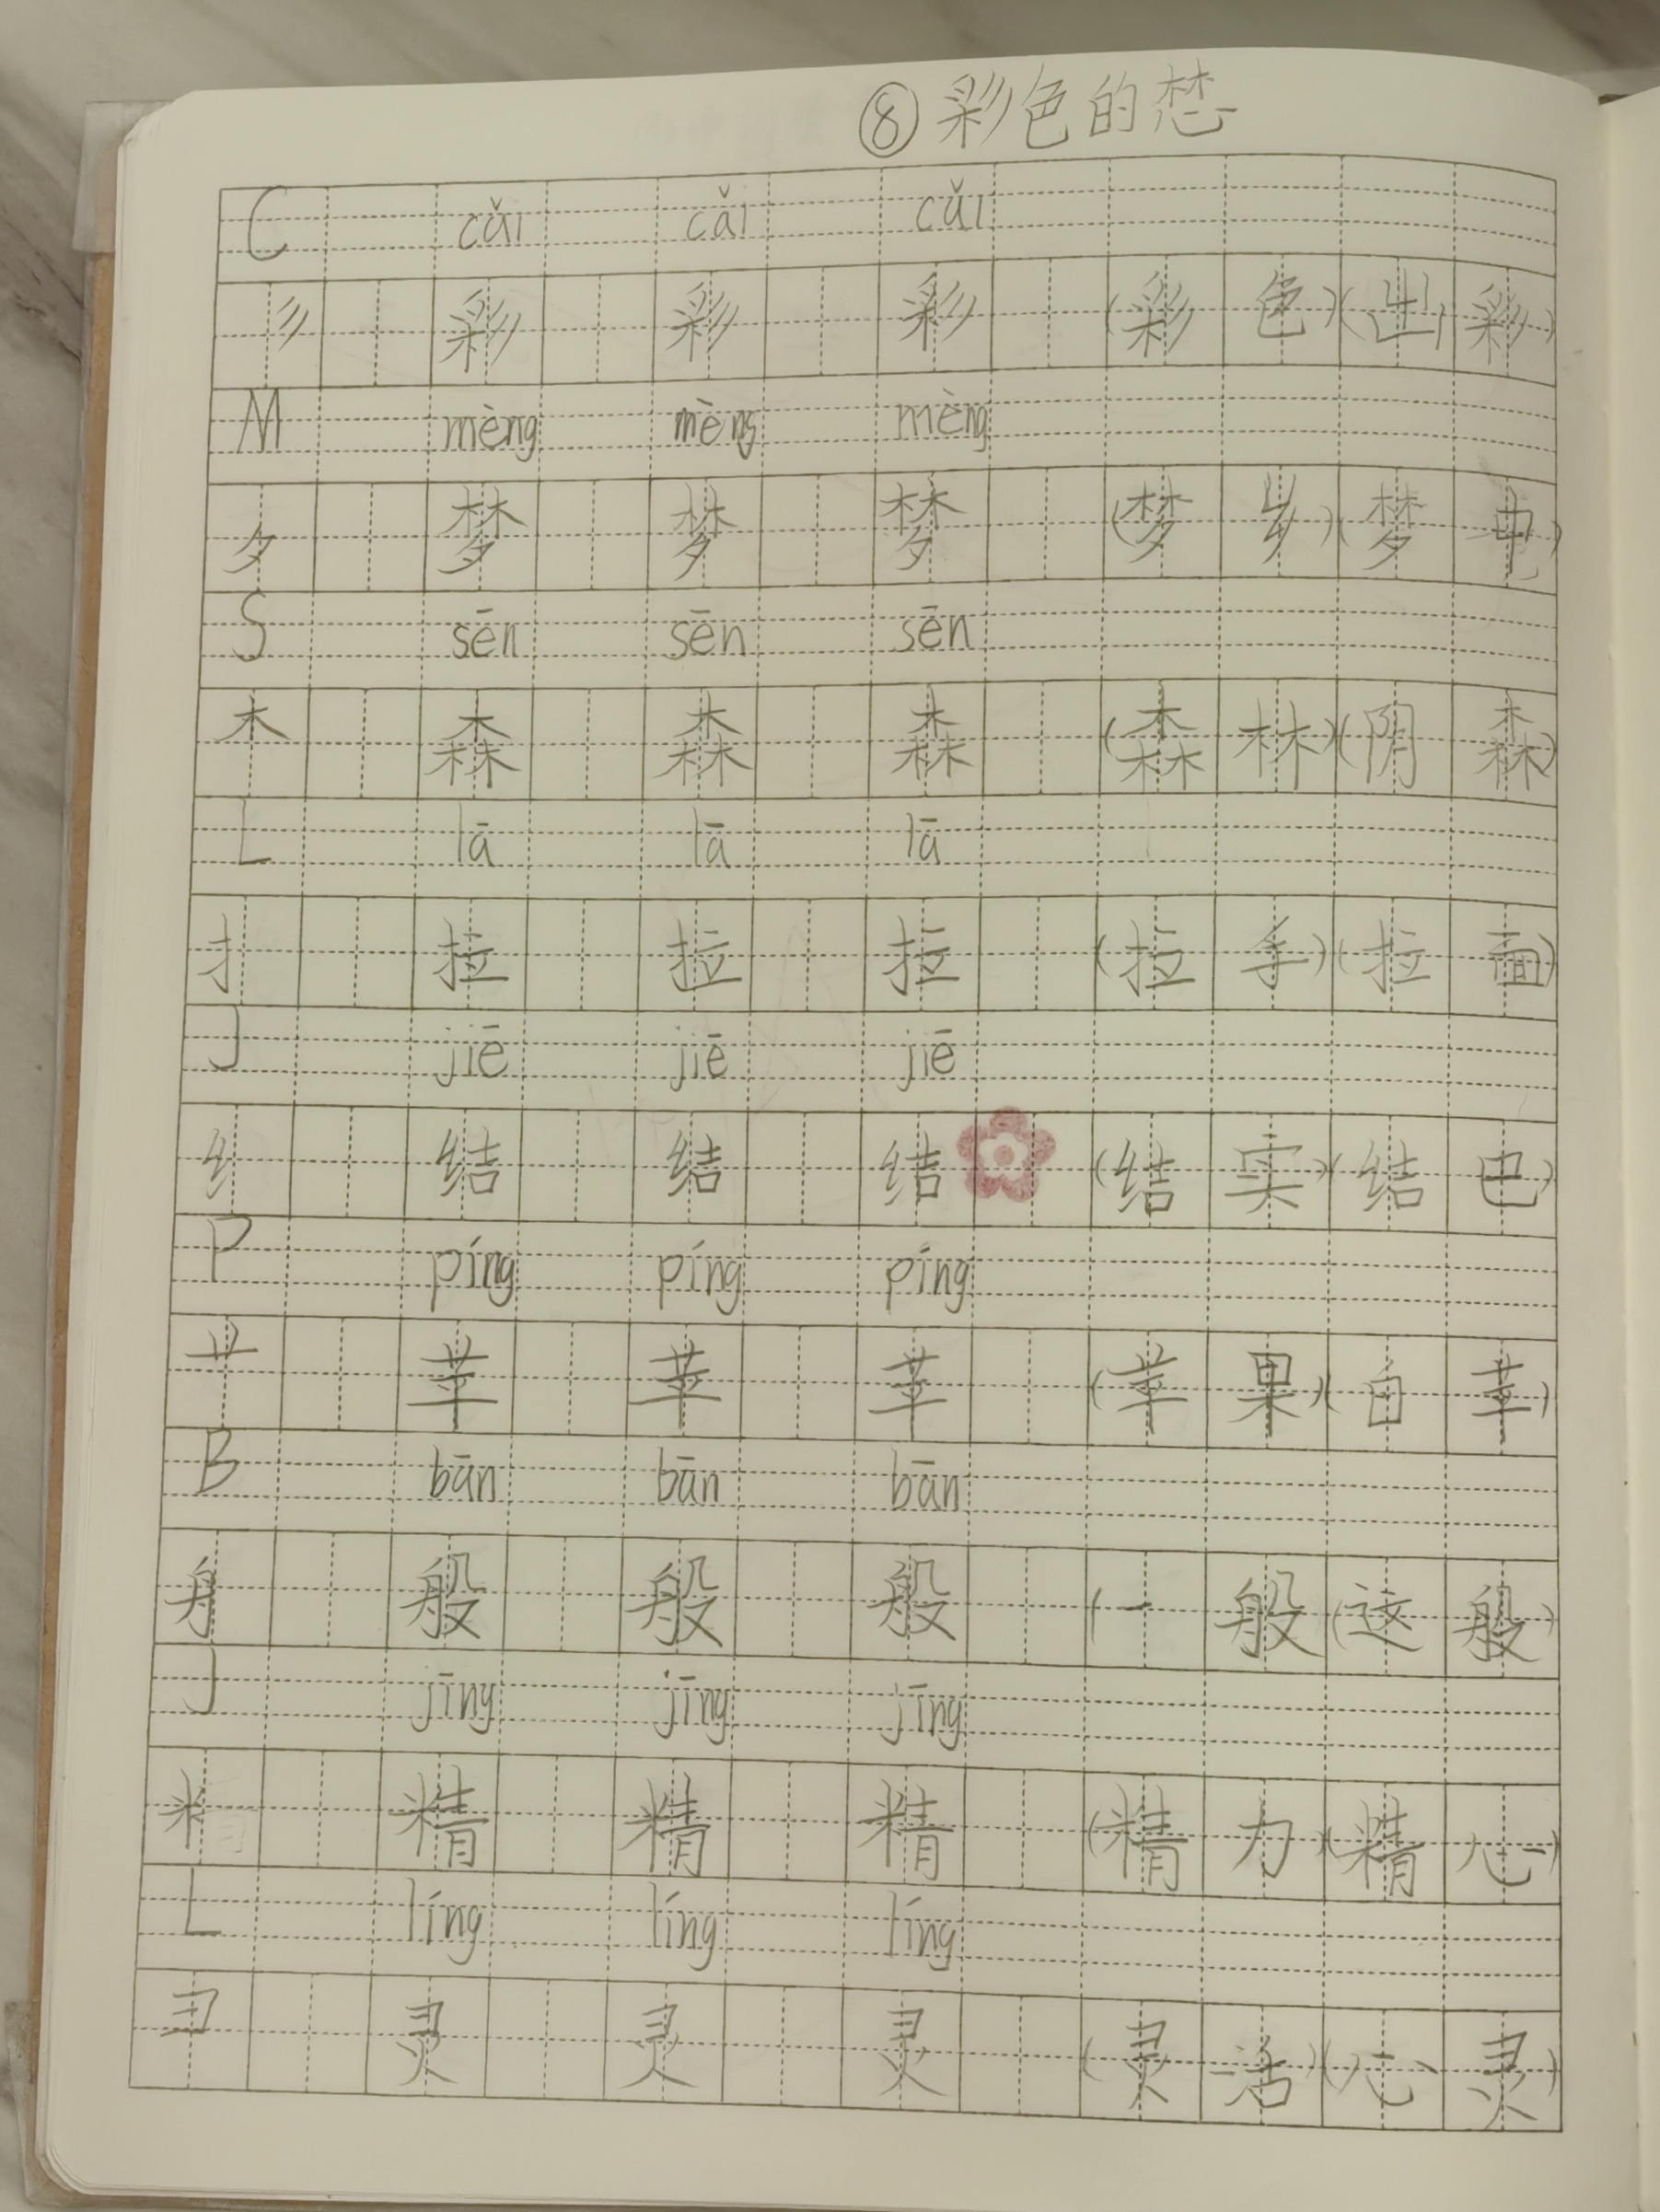 ⑧彩色的梦
C cǎi cǎi cǎi
彡 彩 彩 彩 (彩色)(出彩)
M mèng mèng mèng
夕 梦 梦 梦 (梦乡)(梦中)
S sēn sēn sēn
木 森 森 森 (森林)(阴森)
L lā lā lā
扌 拉 拉 拉 (拉手)(拉面)
J jiē jiē jiē
纟 结 结 结 (结实)(结巴)
P píng píng píng
艹 苹 苹 苹 (苹果)(白苹)
B bān bān bān
舟 般 般 般 (一般(这般)
J jīng jīng jīng
米 精 精 精 (精力)(精心)
L líng líng líng
彐 灵 灵 灵 (灵活)(心灵)